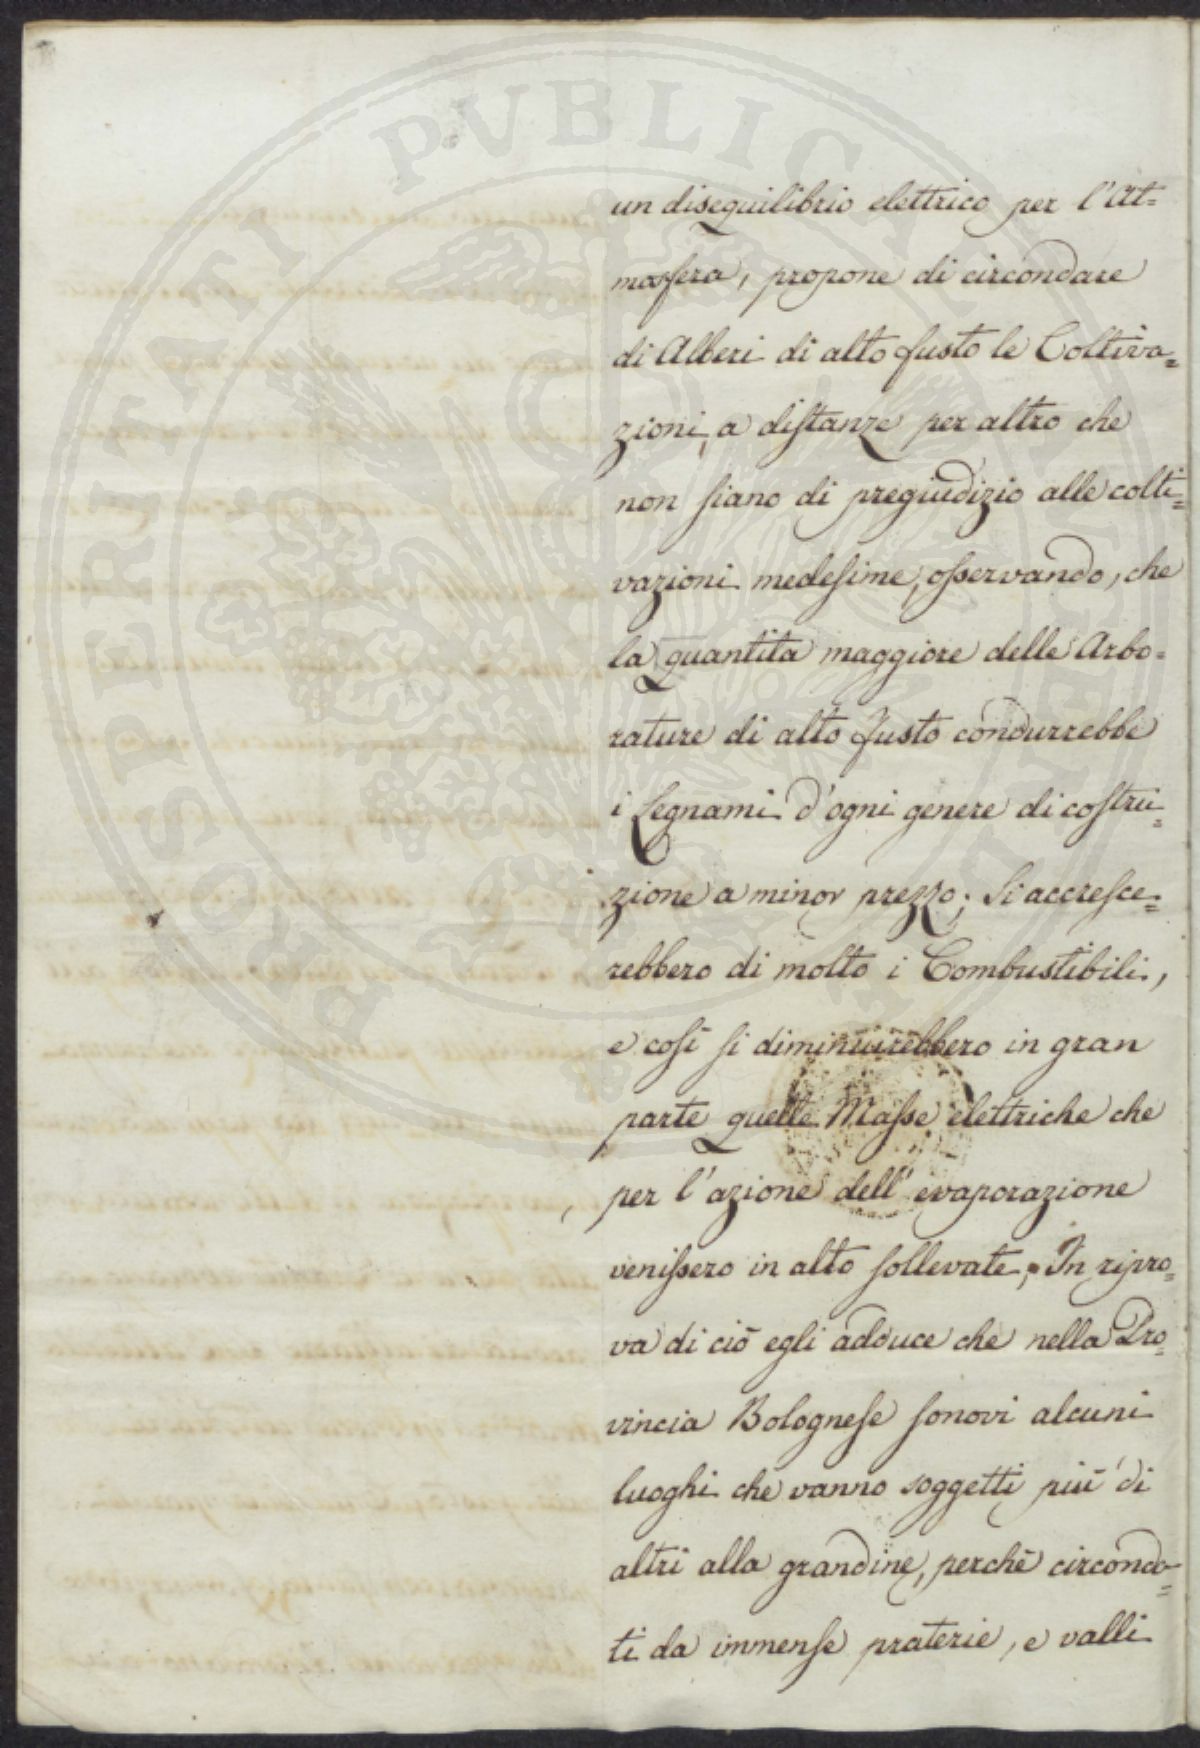 un disequilibrio elettrico per l'At=
mosfera, propone di circondare
di Alberi di alto fusto le Coltiva=
zioni, a distanze per altro che
non siano di pregiudizio alle colti=
vazioni medesime, osservando, che
la quantita maggiore delle Arbo=
rature di alto fusto condurrebbe
i Legnami d'ogni genere di costru=
zione a minor prezzo; Si accresce=
rebbero di molto i Combustibili,
e così si diminuirebbero in gran
parte quelle Masse elettriche che
per l'azione dell'evaporazione
venissero in alto sollevate; In ripro=
va di ciò egli adduce che nella Pro=
vincia Bolognese sonovi alcuni
luoghi che vanno soggetti più di
altri alla grandine, perchè circonda=
ti da immense praterie, e valli
PROSPERITATI PVBLICAE